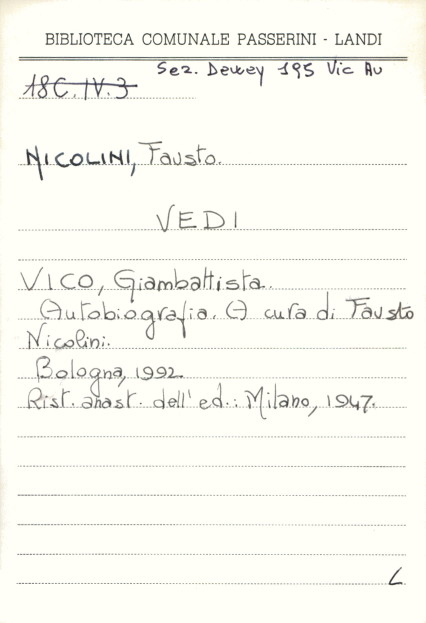 BIBLIOTECA COMUNALE PASSERINI - LANDI
Sez. Dewey 195 Vic Au
18C.IV.3
NICOLINI, Fausto.
VEDI
VICO, Giambattista.
Autobiografia. A cura di Fausto
Nicolini.
Bologna, 1992
Rist. anast. dell'ed.: Milano, 1947.
L